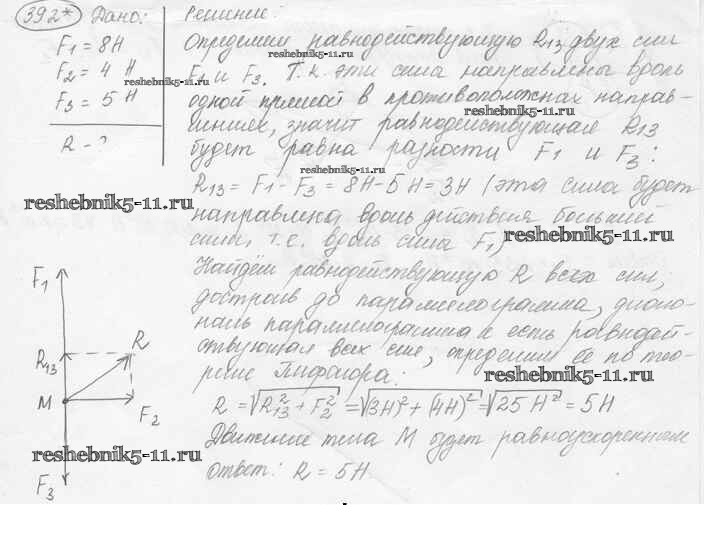 392* Дано: Решение:
F1 = 8Н
F2 = 4 Н
F3 = 5 Н
R - ?
Определим равнодействующую R13 двух сил
F1 и F3. Т.к. эти силы направлены вдоль
одной прямой в противоположных направ-
лениях, значит равнодействующая R13
будет равна разности F1 и F3:
R13 = F1 - F3 = 8Н - 5Н = 3Н (эта сила будет
направлена вдоль действия большей
силы, т.е. вдоль силы F1)
Найдём равнодействующую R всех сил,
достроив до параллелограмма, диаго-
наль параллелограмма и есть равнодей-
ствующая всех сил, определим её по тео-
реме Пифагора:
R = √R13² + F2² = √(3Н)² + (4Н)² = √25 Н² = 5Н
Движение тела М будет равноускоренным
Ответ: R = 5Н
F1
R13
R
M
F2
F3
reshebnik5-11.ru
reshebnik5-11.ru
reshebnik5-11.ru
reshebnik5-11.ru
reshebnik5-11.ru
reshebnik5-11.ru
reshebnik5-11.ru
reshebnik5-11.ru